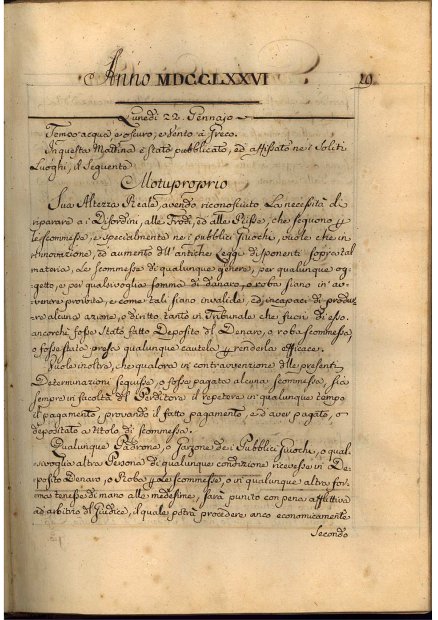 Anno MDCCLXXVI
29
Lunedì 22. Gennajo
Tempo acqua, e oscuro, e Vento à Greco.
In questa Mattina è stato pubblicato, ed affissato ne i Soliti
Luoghi, il Seguente
Motuproprio
Sua Altezza Reale avendo riconosciuto la necessità di
riparare a i Disordini, alle Frodi, ed alle Risse, che seguono p
le scommesse, e specialmente ne i pubblici Giuochi, vuole che in
rinnovazione, ed aumento dell'antiche Leggi disponenti sopra tal
materia, le scommesse di qualunque genere, per qualunque og-
getto, e per qualsivoglia somma di danaro, o roba siano in av-
venire proibite, e come tali siano invalide, ed incapaci di produr
re alcuna azione, o diritto tanto in Tribunale che fuori di esso
ancorchè fosse Stato fatto Deposito del Denaro, o roba scommessa,
o fosse stata presa qualunque cautela p renderla efficace.
Vuole inoltre, che qualora in contravenzione delle presenti
Determinazioni seguisse, o fosse pagata alcuna scommessa, sia
sempre in facoltà del Perditore il repetere in qualunque tempo
il pagamento, provando il fatto pagamento, e d'aver pagato, o
depositato a titolo di scommessa.
Qualunque Padrone, o Garzone dei Pubblici Giuochi, o qual-
sivoglia altra Persona di qualunque condizione ricevesse in De-
posito Denaro, o Robe p le scommesse, o in qualunque altra for-
ma tenesse di mano alle medesime, sarà punito con pena afflittiva
ad arbitrio del Giudice, il quale potrà procedere anco economicamente
Secondo